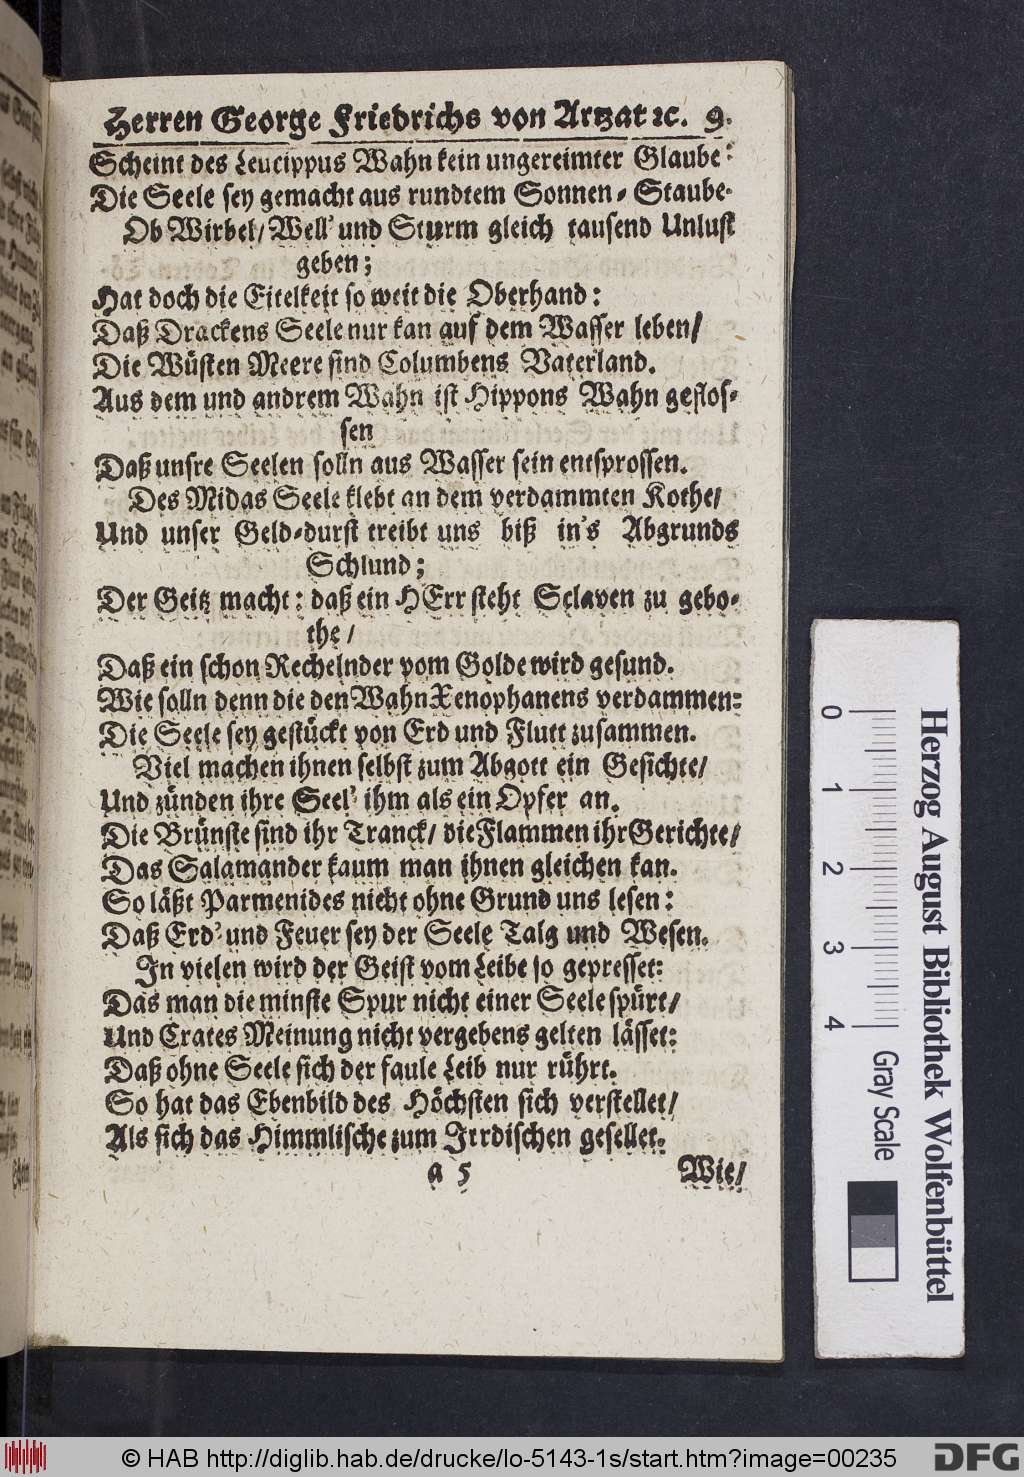 Herren George Friedrichs von Artzat ꝛc. 9.
Scheint des Leucippus Wahn kein ungereimter Glaube:
Die Seele sey gemacht aus rundtem Sonnen-Staube.
Ob Wirbel/ Well' und Sturm gleich tausend Unlust
geben;
Hat doch die Eitelkeit so weit die Oberhand:
Daß Drackens Seele nur kan auf dem Wasser leben/
Die Wüsten Meere sind Columbens Vaterland.
Aus dem und andrem Wahn ist Hippons Wahn geflos-
sen
Daß unsre Seelen solln aus Wasser sein entsprossen.
Des Midas Seele klebt an dem verdammten Kothe/
Und unser Geld-durst treibt uns biß in's Abgrunds
Schlund;
Der Geitz macht: daß ein HErr steht Sclaven zu gebo-
the/
Daß ein schon Rechelnder vom Golde wird gesund.
Wie solln denn die den Wahn Xenophanens verdammen:
Die Seele sey gestückt von Erd und Flutt zusammen.
Viel machen ihnen selbst zum Abgott ein Gesichte/
Und zünden ihre Seel' ihm als ein Opfer an.
Die Brünste sind ihr Tranck/ die Flammen ihr Gerichte/
Das Salamander kaum man ihnen gleichen kan.
So läßt Parmenides nicht ohne Grund uns lesen:
Daß Erd' und Feuer sey der Seele Talg und Wesen.
In vielen wird der Geist vom Leibe so gepresset:
Das man die minste Spur nicht einer Seele spürt/
Und Crates Meinung nicht vergebens gelten lässet:
Daß ohne Seele sich der faule Leib nur rührt.
So hat das Ebenbild des Höchsten sich verstellet/
Als sich das Himmlische zum Irrdischen gesellet.
a 5 Wie/
0 1 2 3 4
Gray Scale
Herzog August Bibliothek Wolfenbüttel
© HAB http://diglib.hab.de/drucke/lo-5143-1s/start.htm?image=00235
DFG